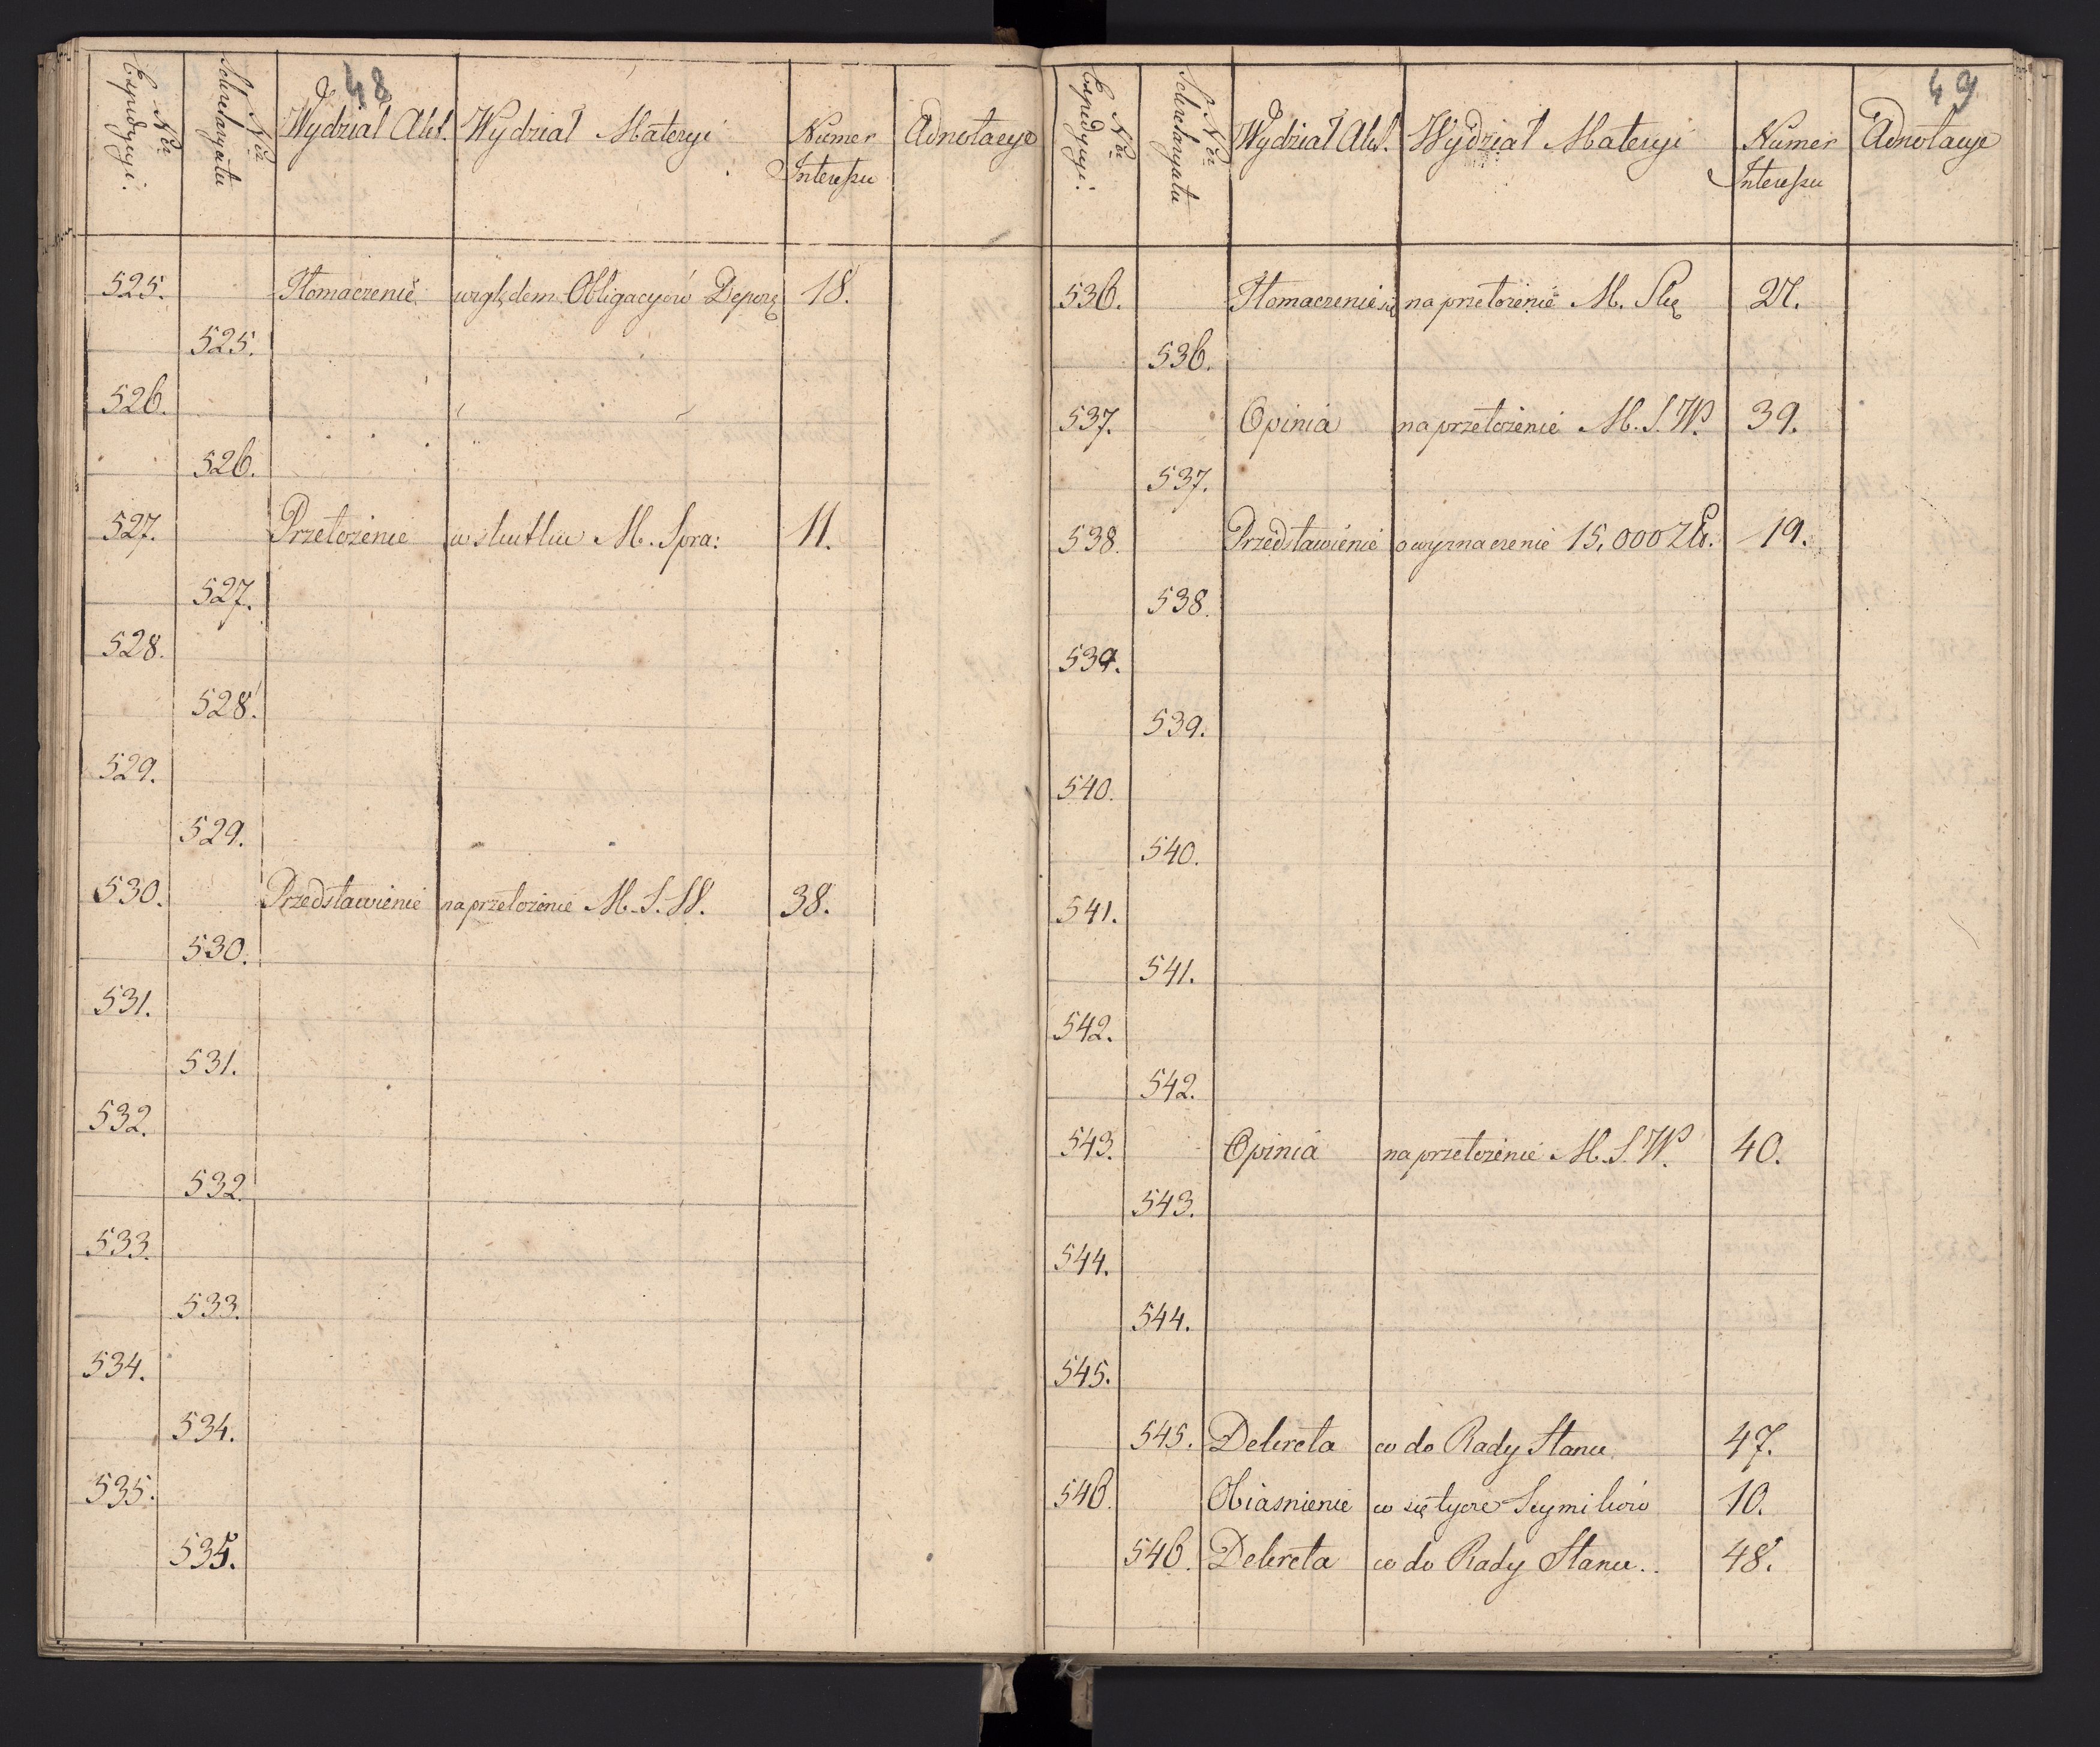 48
Nr Expedycyi. Nr Sekretaryatu Wydział Akt. Wydział Materyi Numer Interessu Adnotacye
525. Tłomaczenie względem Obligacyów 18.
525.
526.
526.
527. Przełożenie w skutku M. Spra: 11.
527.
528.
528.
529.
529.
530. Przedstawienie na przełożenie M. S. W. 38.
530.
531.
531.
532.
532.
533.
533.
534.
534.
535.
535.
49
Nr Expedycyi. Nr Sekretaryatu Wydział Akt. Wydział Materyi Numer Interessu Adnotacye
536. Tłomaczenie się na przełożenie M. 27.
536.
537. Opinia na przełożenie M. S. W. 39.
537.
538. Przedstawienie o wyznaczenie 15,000 Zło. 19.
538.
539.
539.
540.
540.
541.
541.
542.
542.
543. Opinia na przełożenie M. S. W. 40.
543.
544.
544.
545.
545. Dekreta co do Rady Stanu 47.
546. Obiasnienie co się tycze Seymików 10.
546. Dekreta co do Rady Stanu.. 48.